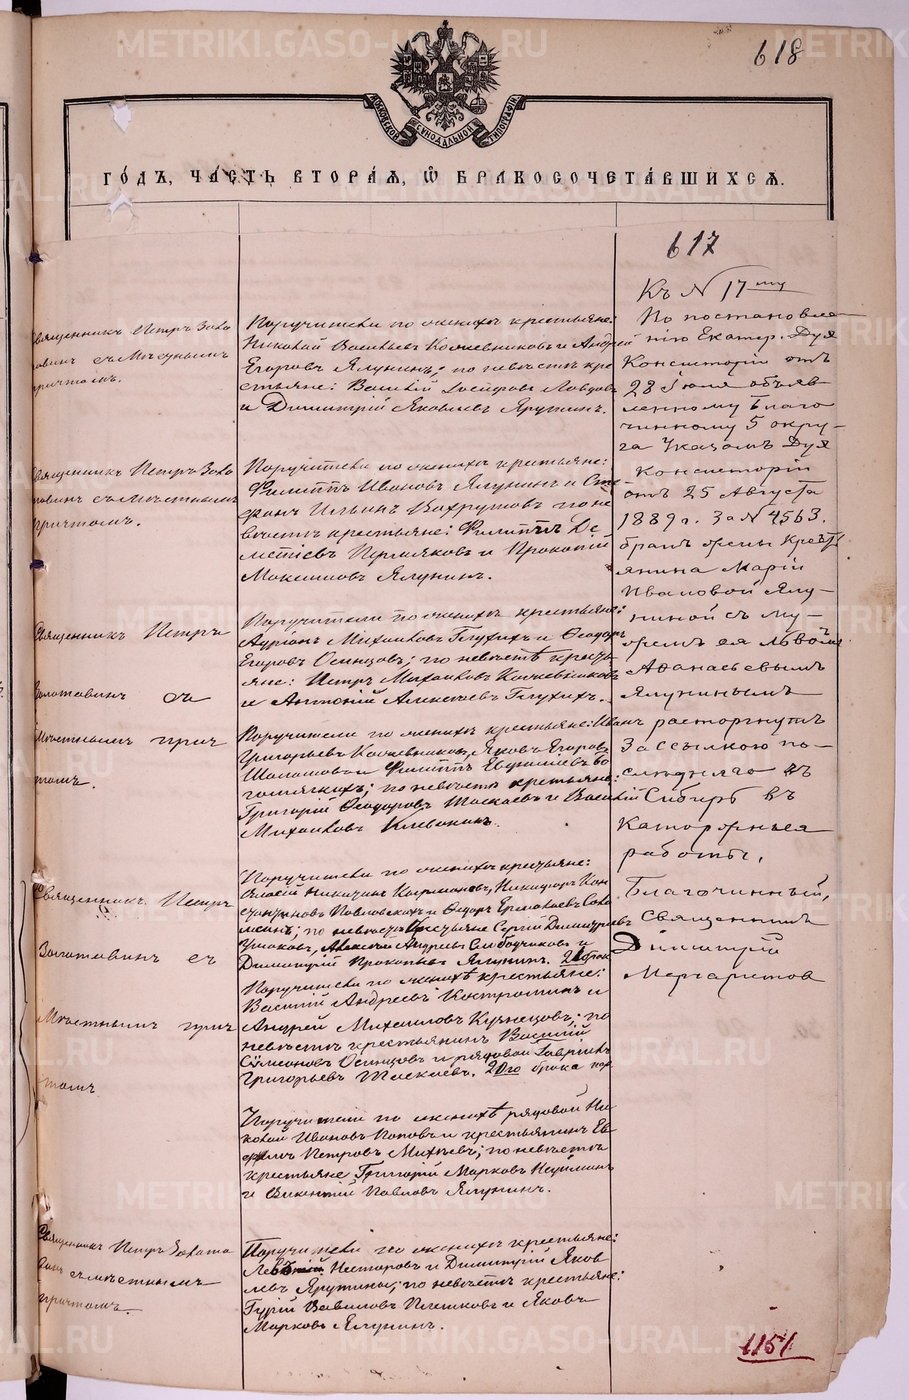 618
МОСКОВСКОЙ СѴНОДАЛЬНОЙ ТИПОГРАФІИ
ГО́ДЪ, ЧА́СТЬ ВТОРА́Я, Ѽ БРАКОСОЧЕТА́ВШИХСЯ.
617
Священникъ Петръ Золо
товинъ съ мѣстнымъ
причтомъ.
Поручители по женихѣ крестьяне:
Николай Васильевъ Кожевниковъ и Андрей
Егоровъ Ялунинъ; по невѣстѣ кре
стьяне: Василій
и Димитрій Яковлевъ Ярутинъ.
Священникъ Петръ Золо
товинъ съ мѣстнымъ
причтомъ.
Поручители по женихѣ крестьяне:
Филиппъ Ивановъ Ялунинъ и Сте
фанъ Ильинъ Вахрушовъ по не
вѣстѣ крестьяне: Филиппъ Де
ментіевъ Пермяковъ и Прокопій
Максимовъ Ялунинъ.
Священникъ Петръ
Золотовинъ съ
мѣстнымъ прич
томъ.
Поручители по женихѣ крестьяне:
Михаиловъ Глухихъ и Ѳеодоръ
Егоровъ Осинцовъ; по невѣстѣ кресть
яне: Петръ Михаиловъ Кожевниковъ
и Антоній Алексѣевъ Глухихъ.
Поручители по женихѣ крестьяне: Иванъ
Григорьевъ Кожевниковъ, Яковъ Егоровъ
Шаламовъ и Филиппъ Евдокимовъ Бо
гомягковъ; по невѣстѣ крестьяне:
Григорій Ѳеодоровъ Шаскаевъ и Василій
Михаиловъ Клевакинъ.
Священникъ Петръ
Золотовинъ съ
мѣстнымъ прич
томъ
Поручители по женихѣ крестьяне:
Никифоръ Кон
стантиновъ Павловскихъ и Ѳедоръ Ермолаевъ
по невѣстѣ крестьяне Сергій Димитріевъ
Ушаковъ, Алексѣй Андреевъ Слободчиковъ и
Димитрій Прокопьевъ Ялунинъ. 2 брак
Поручители по женихѣ крестьяне:
Василій Андреевъ Костроминъ и
Андрей Михаиловъ Кузнецовъ; по
невѣстѣ крестьянинъ Василій
Сѵмеоновъ Осинцовъ и рядовой Гавріилъ
Григорьевъ Шаскаевъ. 2го брака
Поручители по женихѣ рядовой Ни
колай Ивановъ Поповъ и крестьянинъ Ев
Петровъ Михѣевъ; по невѣстѣ
крестьяне Григорій Марковъ
и Викентій Павловъ Ялунинъ.
Священникъ Петръ Золото
винъ съ мѣстнымъ
причтомъ.
Поручители по женихѣ крестьяне:
Несторовъ и Димитрій Яков
левъ Ярутины; по невѣстѣ крестьяне:
Гурій Вавиловъ Плешковъ и Яковъ
Марковъ Ялунинъ.
Къ № 17му
По постановле
нію Екатер. Дух
Консисторіи отъ
28 Іюля объяв-
ленному Благо
чинному 5 окру-
га Указомъ Дух
Консисторіи
отъ 25 Августа
1889 г. за № 4563.
бракъ жены кресть
янина Маріи
Ивановой Ялу-
ниной съ му-
жемъ ея Львомъ
Аѳанасьевымъ
Ялунинымъ
расторгнутъ
За ссылкою по-
слѣдняго въ
Сибирь въ
Каторжныя
работы.
Благочинный,
Священникъ
Димитрій
Маргаритовъ
1151
METRIKI.GASO-URAL.RU